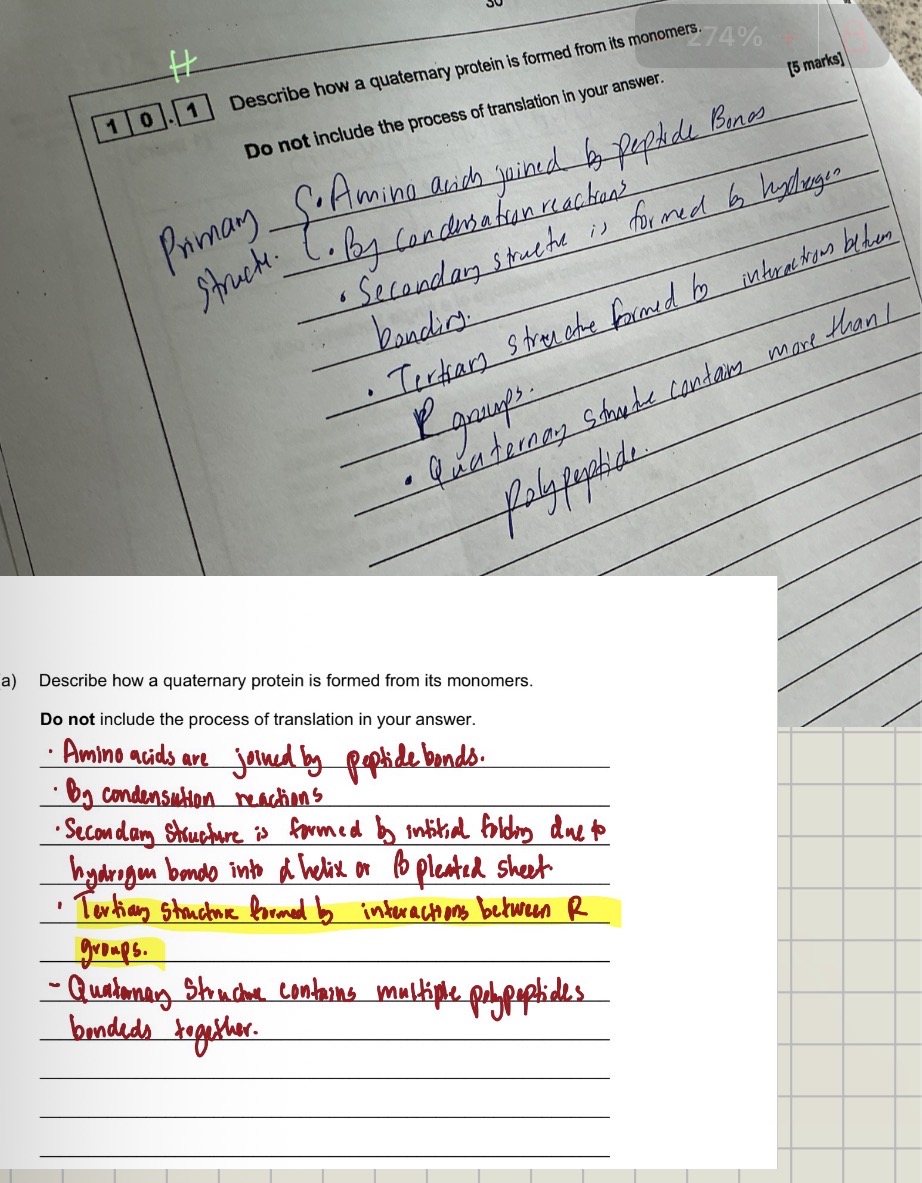 30
274% +
H
1 0 . 1 Describe how a quaternary protein is formed from its monomers.
Do not include the process of translation in your answer.
[5 marks]
Primary structe.
• Amino acids joined by peptide Bonds
• By condensation reactions
• Secondary structe is formed by hydrogen
bonding.
• Tertiary structure formed by interactions between
R groups.
• Quaternary structure contains more than 1
polypeptide.
a) Describe how a quaternary protein is formed from its monomers.
Do not include the process of translation in your answer.
· Amino acids are joined by peptide bonds.
· By condensation reactions
· Secondary Structure is formed by intitial folding due to
hydrogen bonds into α helix or β pleated sheet
· Tertiary structure formed by interactions between R
groups.
- Quaternary Structure contains multiple polypeptides
bondeds together.